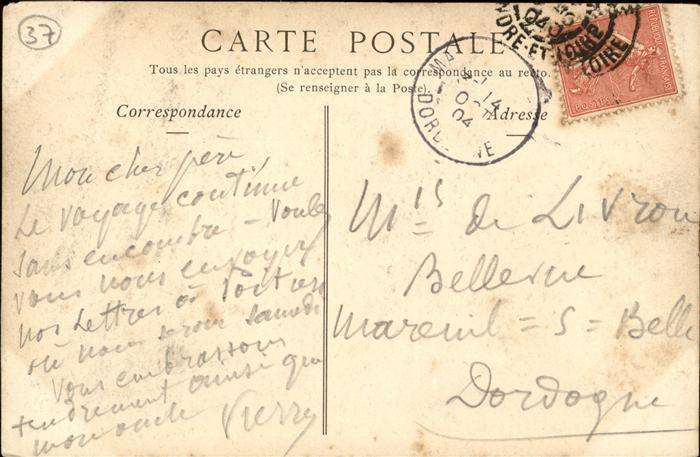 37
CARTE POSTALE
Tous les pays étrangers n'acceptent pas la correspondance au recto.
(Se renseigner à la Poste).
Correspondance
Mon cher père
Le voyage continue
sans encombre - Voulez
vous nous envoyer
nos lettres à Poitiers
où nous serons samedi
Vous embrassons
tendrement ainsi que
mon oncle Pierre
Adresse
Mis de Livron
Bellevue
Mareuil = S = Belle
Dordogne
14
04
DORDOGNE
INDRE-ET-LOIRE